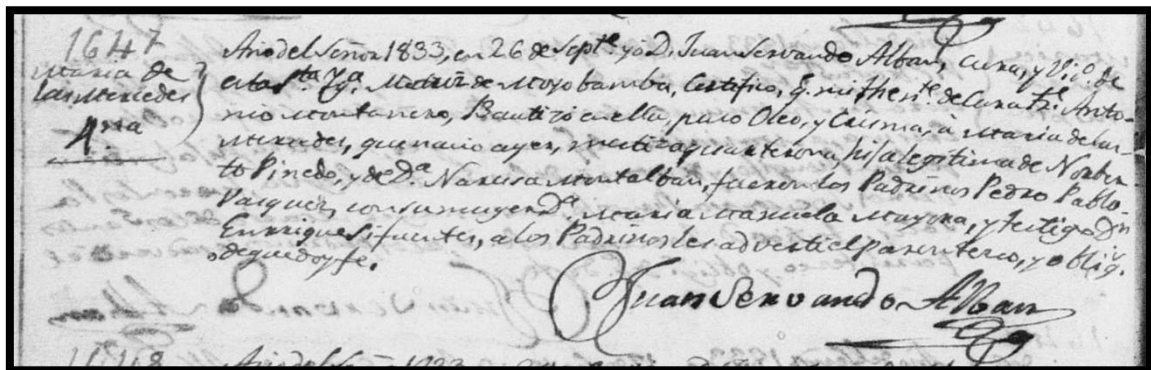 1647
Maria de
las Mercedes
4.ria
Año del Señor 1833, en 26 de Septe. yo D. Juan Servando Alban, Cura, y Vico. de
esta Sta. Yga. Matriz de Moyobamba, Certifico, q. mi Thente. de Cura Fr. Anto-
nio Montañero, Bautizó en ella, puso Oleo, y Crisma, à Maria de las
Mercedes, que nacio ayer, mestiza quarterona, hija legitima de Norber-
to Pinedo, y de Da. Narcisa Montalban, fueron los Padrinos Pedro Pablo
Vasquez, con su muger Da. Maria Manuela Mayora, y testigo Dn
Enrrique Sifuentes, a los Padrinos les adverti el parentesco, y oblig.
de que doy fe.
Juan Servando Alban
1648
Año del Señor 1833